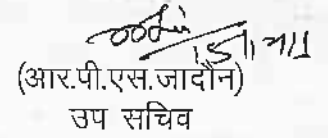 (आर.पी.एस.जादौन)
उप सचिव